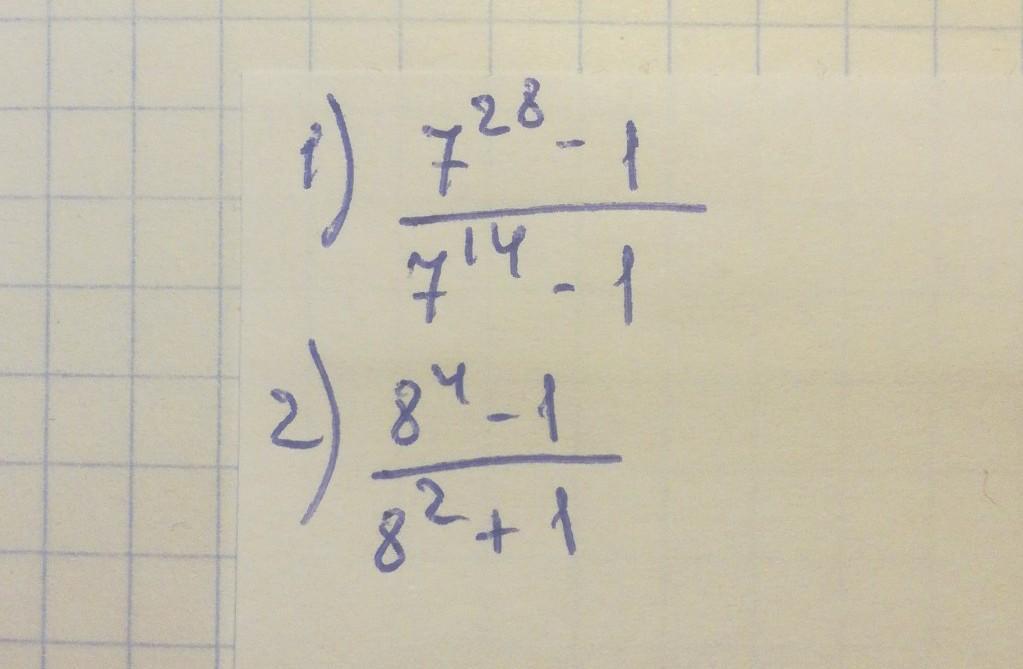 1) 7²⁸ - 1
7¹⁴ - 1
2) 8⁴ - 1
8² + 1